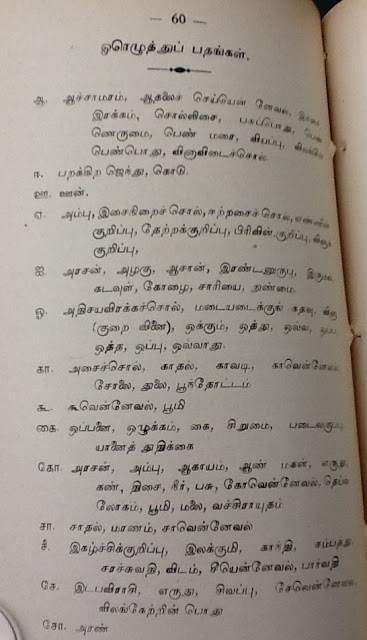 — 60 —
ஓரெழுத்துப் பதங்கள்.
ஆ. ஆச்சாமரம், ஆதலைச் செய்யென னேவல்,
இரக்கம், சொல்லிசை, பசுப்பொது,
ணெருமை, பெண் மரை, வியப்பு,
பெண்பொது, வினாவிடைச்சொல்
ஈ. பறக்கிற ஜெந்து, கொடு.
ஊ. ஊன்.
ஏ. அம்பு, இசைநிறைச் சொல், ஈற்றசைச் சொல்,
குறிப்பு, தேற்றக்குறிப்பு, பிரிவின் குறிப்பு,
குறிப்பு,
ஐ. அரசன், அழகு, ஆசான், இரண்டனுருபு,
கடவுள், கோழை, சாரியை, நுண்மை.
ஓ. அதிசயவிரக்கச்சொல், மடையடைக்குங் கதவு,
(குறை வினை), ஒக்கும், ஒத்து, ஒவ்வ,
ஒத்த, ஒப்பு, ஒவ்வாது.
கா. அசைச்சொல், காதல், காவடி, காவென்னேவல்
சோலை, துலை, பூந்தோட்டம்
கூ. கூவென்னேவல், பூமி
கை. ஒப்பனை, ஒழுக்கம், கை, சிறுமை, படைவகுப்பு
யானைத் துதிக்கை
கோ. அரசன், அம்பு, ஆகாயம், ஆண் மகன், எருது,
கண், திசை, நீர், பசு, கோவென்னேவல்,
லோகம், பூமி, மலை, வச்சிராயுதம்
சா. சாதல், மரணம், சாவென்னேவல்
சீ. இகழ்ச்சிக்குறிப்பு, இலக்குமி, காந்தி, சம்பத்து,
சரச்சுவதி, விடம், சீயென்னேவல், பார்வதி
சே. இடபவிராசி, எருது, சிவப்பு, சேவென்னேவல்,
விலங்கேற்றின் பொது
சோ. அரண்